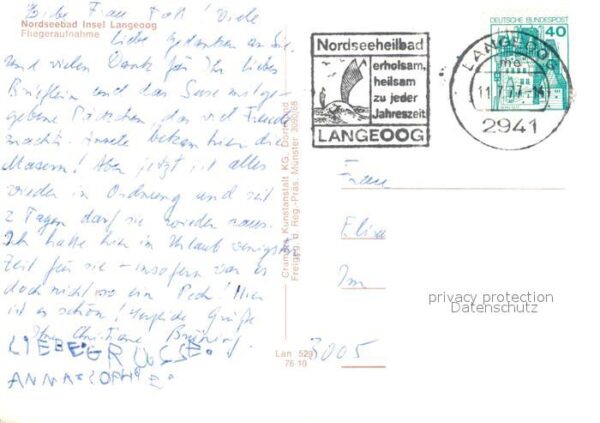 Liebe Frau Toll! Viele
Nordseebad Insel Langeoog
Fliegeraufnahme
liebe Gedanken an Sie
und vielen Dank für Ihr liebes
Brieflein und das Süße mitge-
gebene Päckchen, das viel Freude
machte. Annele bekam hier die
Masern! Aber jetzt ist alles
wieder in Ordnung und seit
2 Tagen darf sie wieder raus.
Ich hatte hier im Urlaub wenigstens
Zeit für sie - insofern war es
doch nicht so ein Pech! Hier
ist es schön! Grüße
Ihre Christiane
LIEBE GRÜSSE
ANNA SOPHIE
Crumüra Kunstanstalt KG, Dortmund
Freigeg. d. Reg.-Präs. Münster
Lan 529
76-10
Nordseeheilbad
erholsam,
heilsam
zu jeder
Jahreszeit
LANGEOOG
DEUTSCHE BUNDESPOST
40
LANGEOOG
mc
11.7.77
2941
Frau
Elisa
Im
3005
privacy protection
Datenschutz